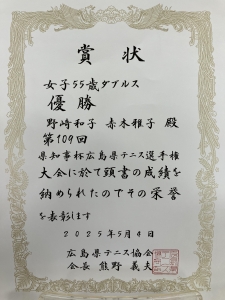 賞状
女子55歳ダブルス
優勝
野崎和子 赤木雅子 殿
第109回
県知事杯広島県テニス選手権
大会に於て頭書の成績を
納められたのでその栄誉
を表彰します
2025年5月4日
広島県テニス協会
会長 熊野義夫